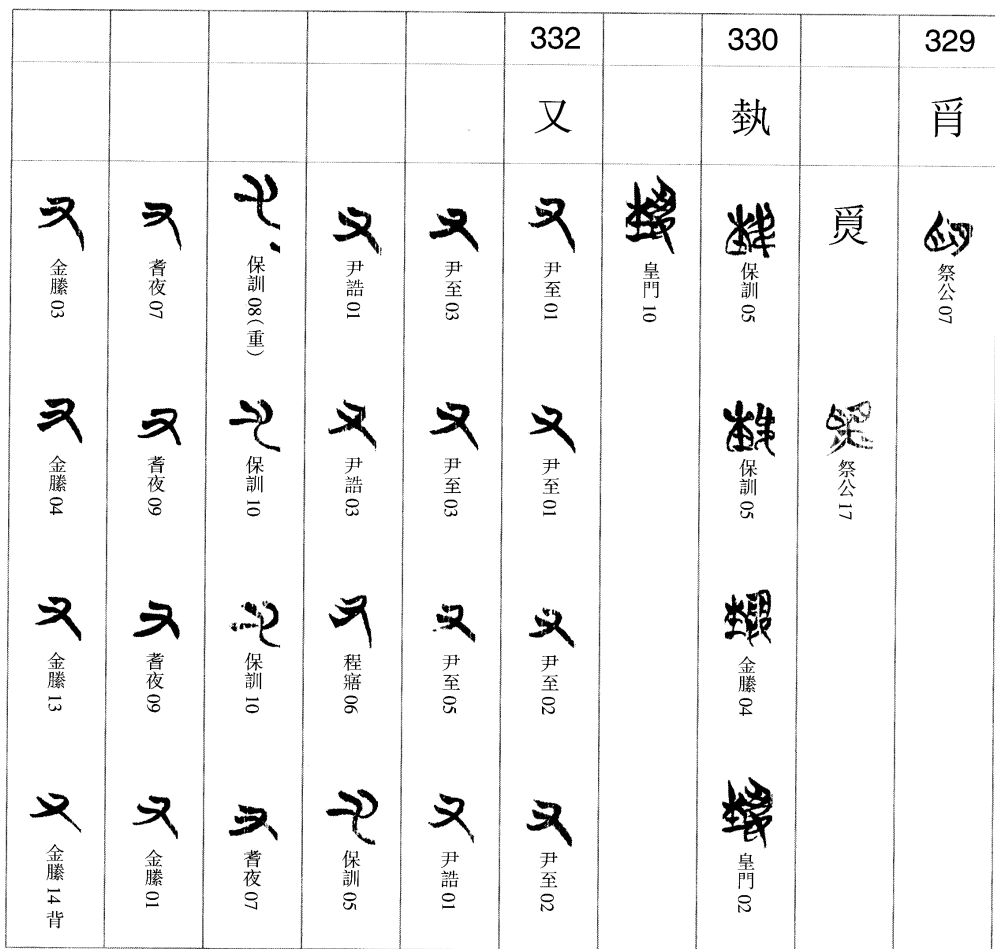 329
祭公 07
祭公 17
330
埶
保訓 05
保訓 05
金縢 04
皇門 02
皇門 10
332
又
尹至 01
尹至 01
尹至 02
尹至 02
尹至 03
尹至 03
尹至 05
尹誥 01
尹誥 01
尹誥 03
程寤 06
保訓 05
保訓 08（重）
保訓 10
保訓 10
耆夜 07
耆夜 07
耆夜 09
耆夜 09
金縢 01
金縢 03
金縢 04
金縢 13
金縢 14 背